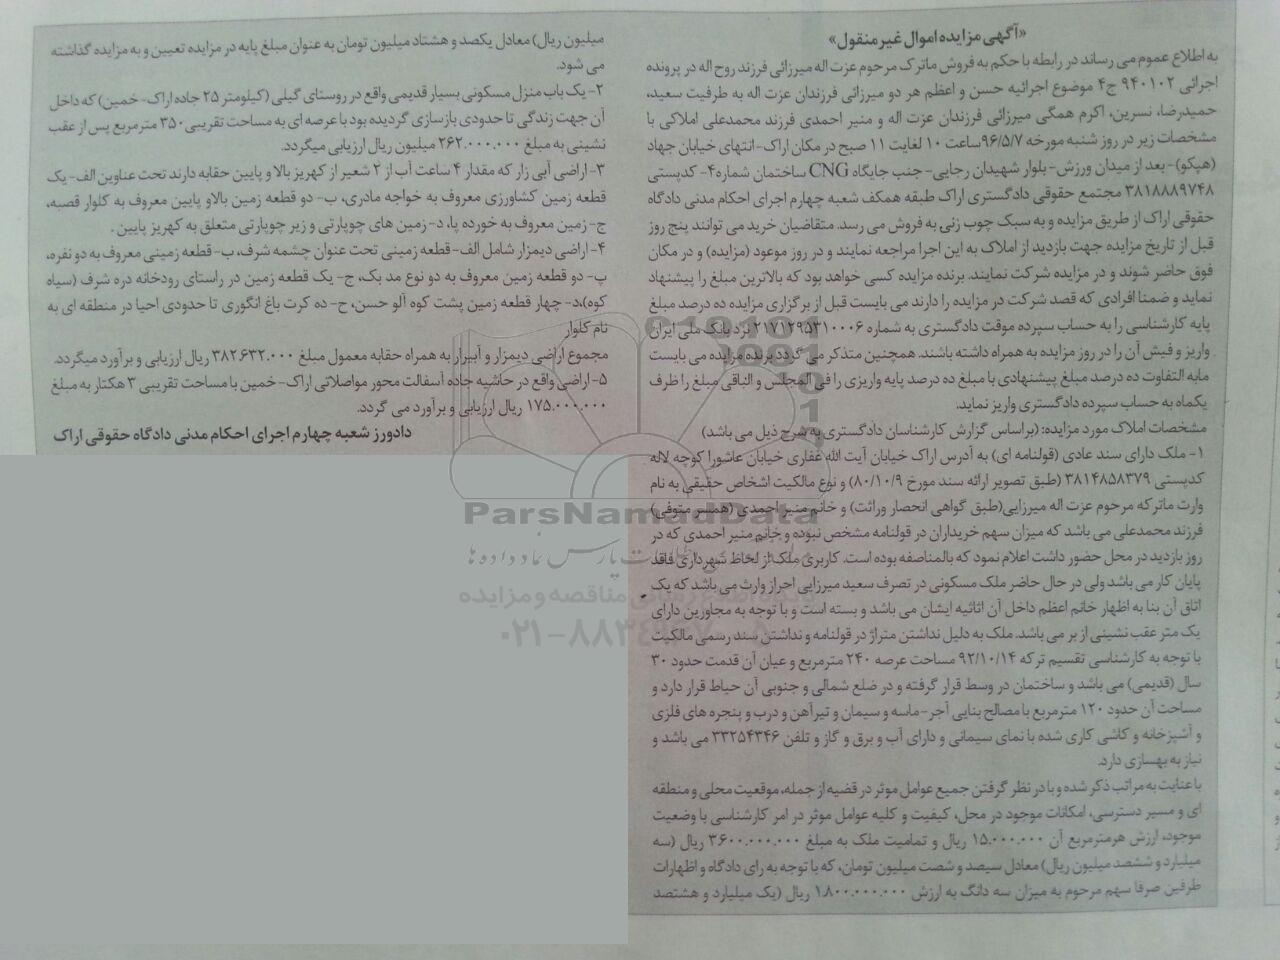 «آگهی مزایده اموال غیر منقول»
به اطلاع عموم می رساند در رابطه با حکم به فروش ماترک مرحوم عزت اله میرزائی فرزند روح اله در پرونده
اجرائی ۹۴۰۱۰۲ ج۴ موضوع اجرائیه حسن و اعظم هر دو میرزائی فرزندان عزت اله به طرفیت سعید،
حمیدرضا، نسرین، اکرم همگی میرزائی فرزندان عزت اله و منیر احمدی فرزند محمدعلی املاکی با
مشخصات زیر در روز شنبه مورخه ۹۶/۵/۷ساعت ۱۰ لغایت ۱۱ صبح در مکان اراک-انتهای خیابان جهاد
(هپکو)-بعد از میدان ورزش-بلوار شهیدان رجایی- جنب جایگاه CNG ساختمان شماره۴- کدپستی
۳۸۱۸۸۸۹۷۴۸ مجتمع حقوقی دادگستری اراک طبقه همکف شعبه چهارم اجرای احکام مدنی دادگاه
حقوقی اراک از طریق مزایده و به سبک چوب زنی به فروش می رسد. متقاضیان خرید می توانند پنج روز
قبل از تاریخ مزایده جهت بازدید از املاک به این اجرا مراجعه نمایند و در روز موعود (مزایده) و در مکان
فوق حاضر شوند و در مزایده شرکت نمایند. برنده مزایده کسی خواهد بود که بالاترین مبلغ را پیشنهاد
نماید و ضمنا افرادی که قصد شرکت در مزایده را دارند می بایست قبل از برگزاری مزایده ده درصد مبلغ
پایه کارشناسی را به حساب سپرده موقت دادگستری به شماره ۲۱۷۱۲۹۵۳۱۰۰۰۶ نزد بانک ملی ایران
واریز و فیش آن را در روز مزایده به همراه داشته باشند. همچنین متذکر می گردد برنده مزایده می بایست
مابه التفاوت ده درصد مبلغ پیشنهادی با مبلغ ده درصد پایه واریزی را فی المجلس و الباقی مبلغ را ظرف
یکماه به حساب سپرده دادگستری واریز نماید.
مشخصات املاک مورد مزایده: (براساس گزارش کارشناسان دادگستری به شرح ذیل می باشد)
۱- ملک دارای سند عادی (قولنامه ای) به آدرس اراک خیابان آیت الله غفاری خیابان عاشورا کوچه لاله
کدپستی ۳۸۱۴۸۵۸۳۷۹ (طبق تصویر ارائه سند مورخ ۸۰/۱۰/۹) و نوع مالکیت اشخاص حقیقی به نام
وارث ماترکه مرحوم عزت اله میرزایی(طبق گواهی انحصار وراثت) و خانم منیر احمدی (همسر متوفی)
فرزند محمدعلی می باشد که میزان سهم خریداران در قولنامه مشخص نبوده و خانم منیر احمدی که در
روز بازدید در محل حضور داشت اعلام نمود که بالمناصفه بوده است. کاربری ملک از لحاظ شهرداری فاقد
پایان کار می باشد ولی در حال حاضر ملک مسکونی در تصرف سعید میرزایی احراز وارث می باشد که یک
اتاق آن بنا به اظهار خانم اعظم داخل آن اثاثیه ایشان می باشد و بسته است و با توجه به مجاورین دارای
یک متر عقب نشینی از بر می باشد. ملک به دلیل نداشتن متراژ در قولنامه و نداشتن سند رسمی مالکیت
با توجه به کارشناسی تقسیم ترکه ۹۲/۱۰/۱۴ مساحت عرصه ۲۴۰ مترمربع و عیان آن قدمت حدود ۳۰
سال (قدیمی) می باشد و ساختمان در وسط قرار گرفته و در ضلع شمالی و جنوبی آن حیاط قرار دارد و
مساحت آن حدود ۱۲۰ مترمربع با مصالح بنایی آجر-ماسه و سیمان و تیرآهن و درب و پنجره های فلزی
و آشپزخانه و کاشی کاری شده با نمای سیمانی و دارای آب و برق و گاز و تلفن ۳۳۲۵۴۳۴۶ می باشد و
نیاز به بهسازی دارد.
با عنایت به مراتب ذکر شده و با در نظر گرفتن جمیع عوامل موثر در قضیه از جمله، موقعیت محلی و منطقه
ای و مسیر دسترسی، امکانات موجود در محل، کیفیت و کلیه عوامل موثر در امر کارشناسی با وضعیت
موجود، ارزش هرمترمربع آن ۱۵.۰۰۰.۰۰۰ ریال و تمامیت ملک به مبلغ ۳.۶۰۰.۰۰۰.۰۰۰ ریال (سه
میلیارد و ششصد میلیون ریال) معادل سیصد و شصت میلیون تومان، که با توجه به رای دادگاه و اظهارات
طرفین صرفا سهم مرحوم به میزان سه دانگ به ارزش ۱.۸۰۰.۰۰۰.۰۰۰ ریال (یک میلیارد و هشتصد
میلیون ریال) معادل یکصد و هشتاد میلیون تومان به عنوان مبلغ پایه در مزایده تعیین و به مزایده گذاشته
می شود.
۲- یک باب منزل مسکونی بسیار قدیمی واقع در روستای گیلی (کیلومتر ۲۵ جاده اراک-خمین) که داخل
آن جهت زندگی تا حدودی بازسازی گردیده بود با عرصه ای به مساحت تقریبی ۳۵۰ مترمربع پس از عقب
نشینی به مبلغ ۲۶۲.۰۰۰.۰۰۰ میلیون ریال ارزیابی میگردد.
۳- اراضی آبی زار که مقدار ۴ ساعت آب از ۲ شعیر از کهریز بالا و پایین حقابه دارند تحت عناوین الف-یک
قطعه زمین کشاورزی معروف به خواجه مادری، ب- دو قطعه زمین بالاو پایین معروف به کلوار قصبه،
ج- زمین معروف به خورده پا، د- زمین های چوپارتی و زیر چوپارتی متعلق به کهریز پایین.
۴- اراضی دیمزار شامل الف- قطعه زمینی تحت عنوان چشمه شرف، ب- قطعه زمینی معروف به دو نفره،
پ- دو قطعه زمین معروف به دو نوع مد بک، ج- یک قطعه زمین در راستای رودخانه دره شرف (سیاه
کوه)،د- چهار قطعه زمین پشت کوه آلو حسن، ح- ده کرت باغ انگوری تا حدودی احیا در منطقه ای به
نام کلوار
مجموع اراضی دیمزار و آبیزار به همراه حقابه معمول مبلغ ۳۸۲.۶۳۲.۰۰۰ ریال ارزیابی و برآورد میگردد.
۵- اراضی واقع در حاشیه جاده آسفالت محور مواصلاتی اراک- خمین با مساحت تقریبی ۳ هکتار به مبلغ
۱۷۵.۰۰۰.۰۰۰ ریال ارزیابی و برآورد می گردد.
دادورز شعبه چهارم اجرای احکام مدنی دادگاه حقوقی اراک
ParsNamadData
پارس نماد داده ها
پایگاه اطلاع رسانی مناقصه و مزایده